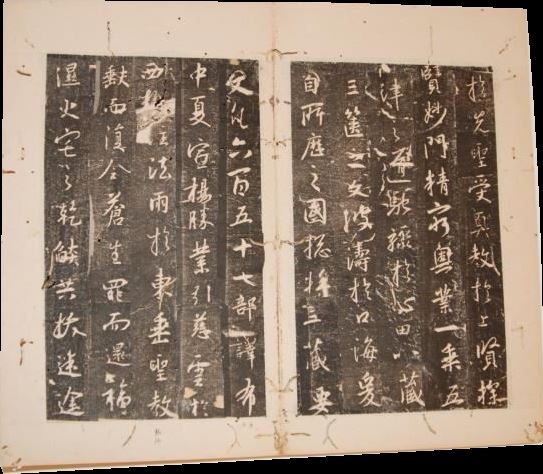 於先聖受真教於上賢探
賾妙門精窮奧業一乘五
律之道馳驟於心田八藏
三篋之文波濤於口海爰
自所歷之國總將三藏要
文凡六百五十七部譯布
中夏宣揚勝業引慈雲於
西極注法雨於東垂聖教
缺而復全蒼生罪而還福
濕火宅之乾焰共拔迷途